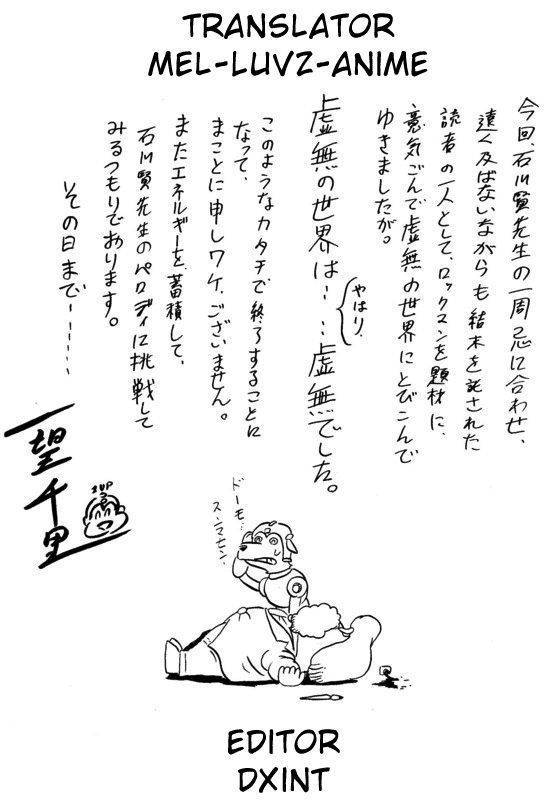 TRANSLATOR
MEL-LUVZ-ANIME
今回、石川賢先生の一周忌に合わせ、
遠く及ばないながらも結末を託された
読者の一人として、ロックマンを題材に、
意気ごんで虚無の世界にとびこんで
ゆきましたが。
虚無の世界は‥‥虚無でした。
やはり、
このようなカタチで終了することに
なって、
まことに申しワケ、ございません。
またエネルギーを蓄積して、
石川賢先生のパロディに挑戦して
みるつもりであります。
その日まで‥‥‥
一望千里
1UP
ドーモ…
スンマセン、
EDITOR
DXINT